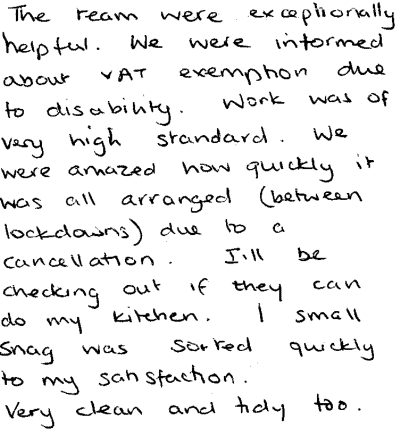 The team were exceptionally
helpful. We were informed
about VAT exemption due
to disability. Work was of
very high standard. We
were amazed how quickly it
was all arranged (between
lockdowns) due to a
cancellation. I'll be
checking out if they can
do my kitchen. 1 small
snag was sorted quickly
to my satisfaction.
Very clean and tidy too.